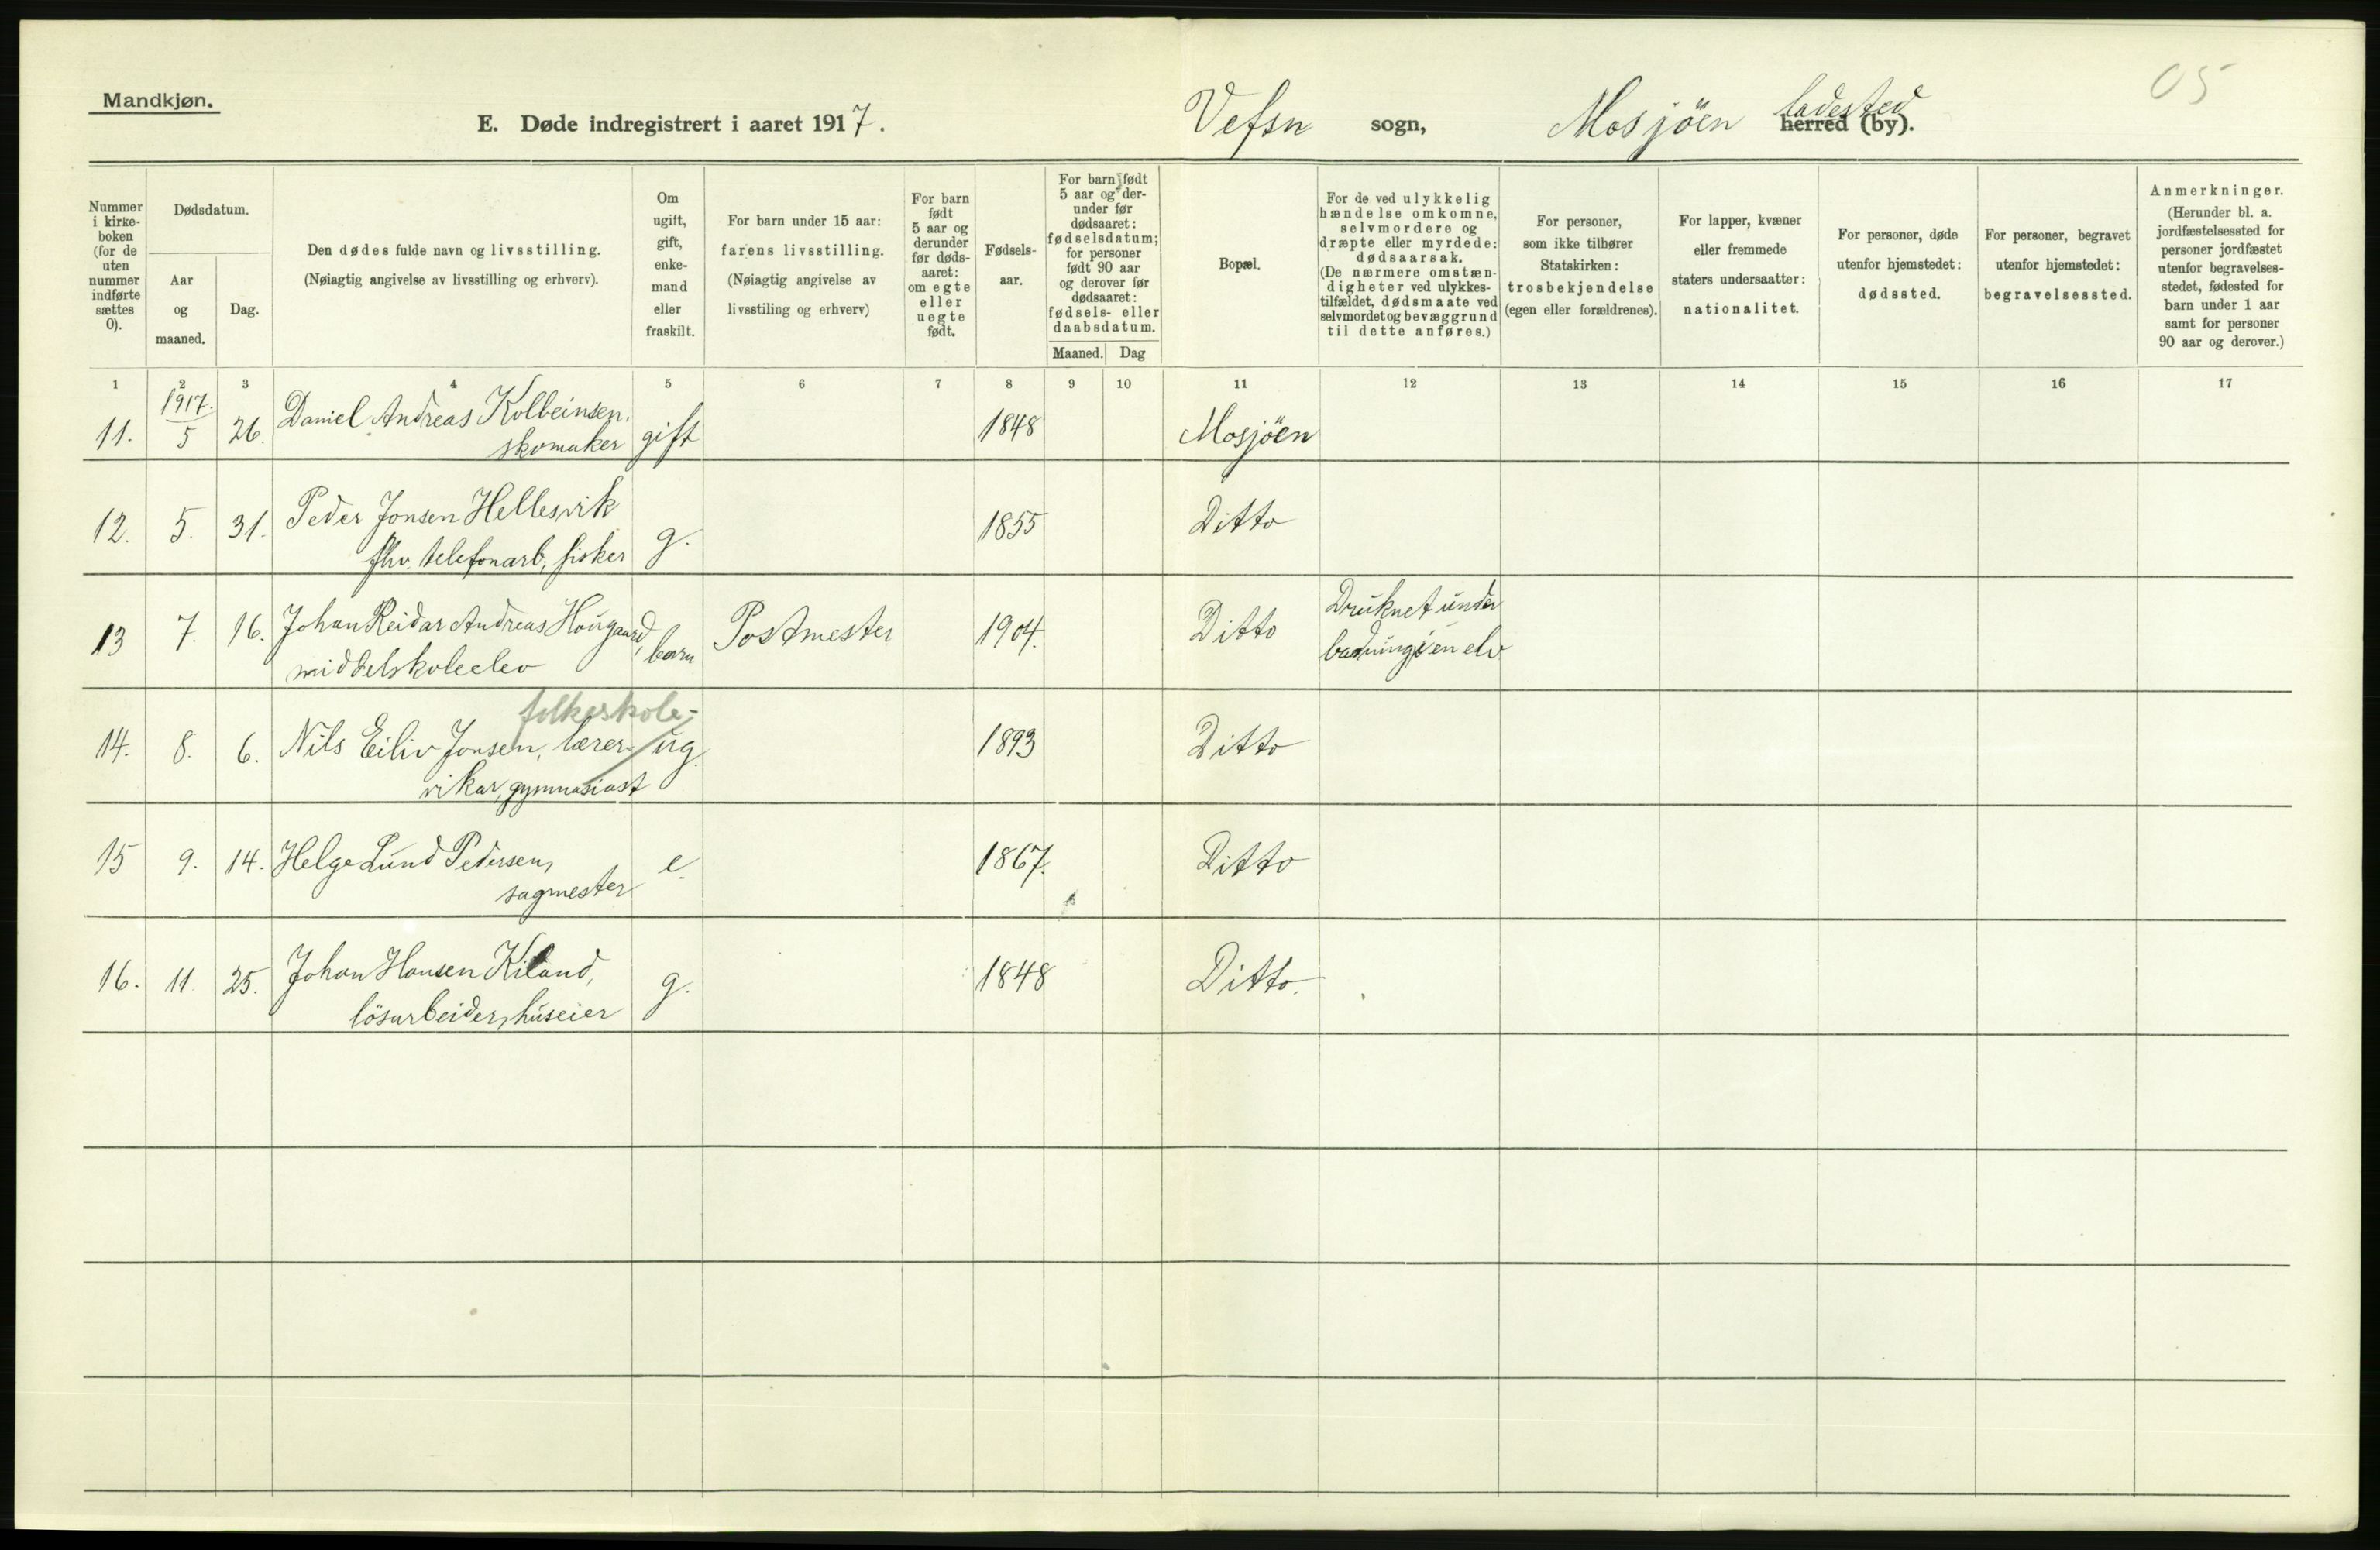 05
Mandkjøn.
E. Døde indregistrert i aaret 1917.
Vefsn sogn, Mosjöen herred (by).
ladested
Nummer i kirke-boken (for de uten nummer indførte sættes 0).
Dødsdatum.
Aar og maaned.
Dag.
Den dødes fulde navn og livsstilling.
(Nøiagtig angivelse av livsstilling og erhverv).
Om ugift, gift, enke-mand eller fraskilt.
For barn under 15 aar:
farens livsstilling.
(Nøiagtig angivelse av
livsstiling og erhverv)
For barn født 5 aar og derunder før døds-aaret: om egte eller uegte født.
Fødsels-aar.
For barn født 5 aar og der-under før dødsaaret: fødselsdatum; for personer født 90 aar og derover før dødsaaret: fødsels- eller daabsdatum.
Maaned. Dag
Bopæl.
For de ved ulykkelig hændelse omkomne, selvmordere og dræpte eller myrdede: dødsaarsak.
(De nærmere omstæn-digheter ved ulykkes-tilfældet, dødsmaate ved selvmordet og bevæggrund til dette anføres.)
For personer, som ikke tilhører Statskirken: trosbekjendelse (egen eller forældrenes).
For lapper, kvæner eller fremmede staters undersaatter: nationalitet.
For personer, døde utenfor hjemstedet: dødssted.
For personer, begravet utenfor hjemstedet: begravelsessted.
Anmerkninger.
(Herunder bl. a. jordfæstelsessted for personer jordfæstet utenfor begravelses-stedet, fødested for barn under 1 aar samt for personer 90 aar og derover.)
1 2 3 4 5 6 7 8 9 10 11 12 13 14 15 16 17
1917.
11. 5 26. Daniel Andreas Kolbeinsen, gift 1848 Mosjöen
skomaker
12. 5. 31. Peder Jonsen Hellesvik g. 1855 Ditto
fhv. telefonarb., fisker
13 7. 16. Johan Reidar Andreas Hougaard, barn Postmester 1904. Ditto Druknet under
middelskoleelev badning i en elv
folkeskole-
14. 8. 6. Nils Eiliv Jonsen, lærer- ug. 1893 Ditto
vikar, gymnasiast
15 9. 14. Helge Lund Pedersen, e. 1867. Ditto
sagmester
16. 11. 25. Johan Hansen Kiland, g. 1848 Ditto.
lösarbeider, huseier